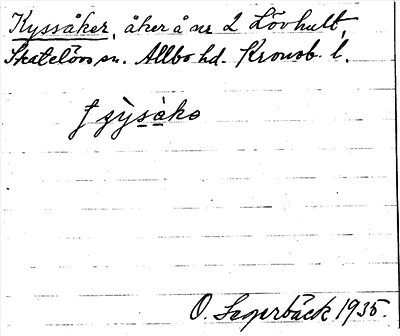 Kyssåker, åker å nr 2 Lövhult,
Skatelövs sn. Allbo hd. Kronob. l.
O. Segerbäck 1935.